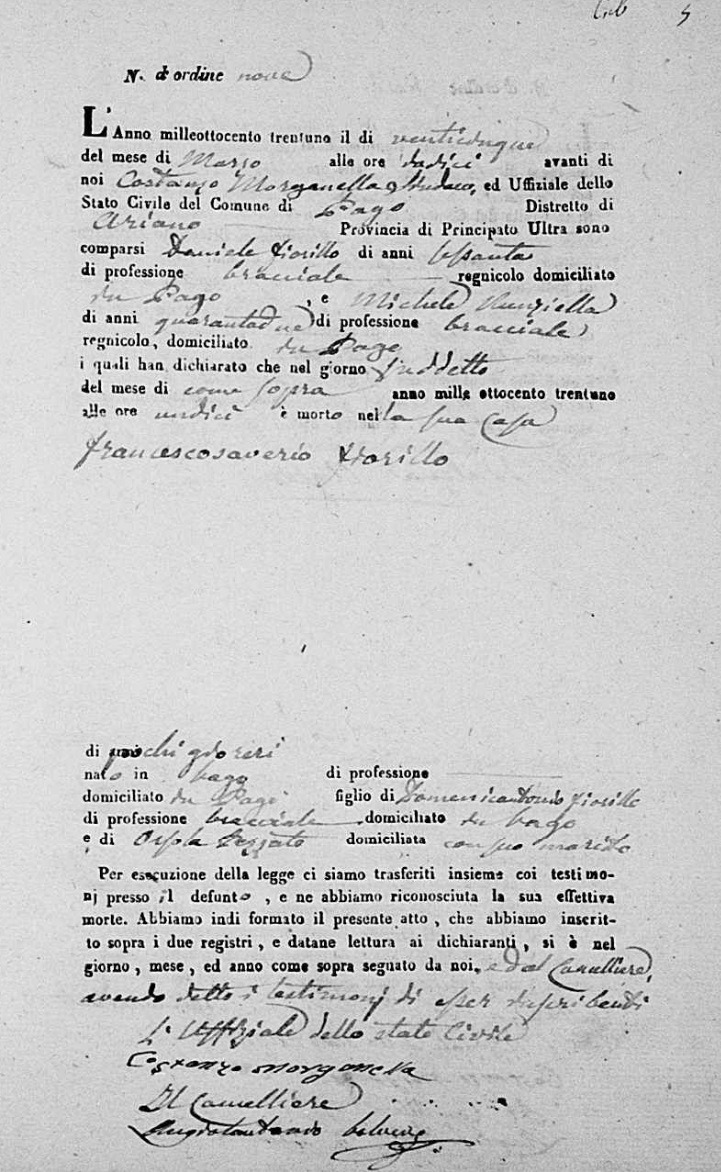 5
N. d'ordine nove
L'Anno milleottocento trentuno il di venticinque
del mese di Marzo alle ore dodici avanti di
noi Costanzo Morganella Sindaco, ed Uffiziale dello
Stato Civile del Comune di Pago Distretto di
Ariano Provincia di Principato Ultra sono
comparsi Daniele Fiorillo di anni sessanta
di professione bracciale regnicolo domiciliato
in Pago, e Michele Nunziella
di anni quarantadue di professione bracciale
regnicolo, domiciliato in Pago
i quali han dichiarato che nel giorno suddetto
del mese di come sopra anno mille ottocento trentuno
alle ore undici è morto nella sua casa
Francescosaverio Fiorillo
di pochi giorni
nato in Pago di professione
domiciliato in Pago figlio di Domenicantonio Fiorillo
di professione bracciale domiciliato in Pago
e di Orsola domiciliata con suo marito
Per esecuzione della legge ci siamo trasferiti insieme coi testimo-
nj presso il defunto, e ne abbiamo riconosciuta la sua effettiva
morte. Abbiamo indi formato il presente atto, che abbiamo inscrit-
to sopra i due registri, e datane lettura ai dichiaranti, si è nel
giorno, mese, ed anno come sopra segnato da noi, e dal Cancelliere,
avendo detto i testimonj di esser
L'Uffiziale dello stato Civile
Costanzo Morganella
Il Cancelliere